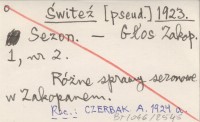 Świteź [pseud.] 1923.
Sezon. — Głos Zakop.
1, nr 2.
Różne sprawy sezonowe
w Zakopanem.
Rec.: CZERBAK A. 1924